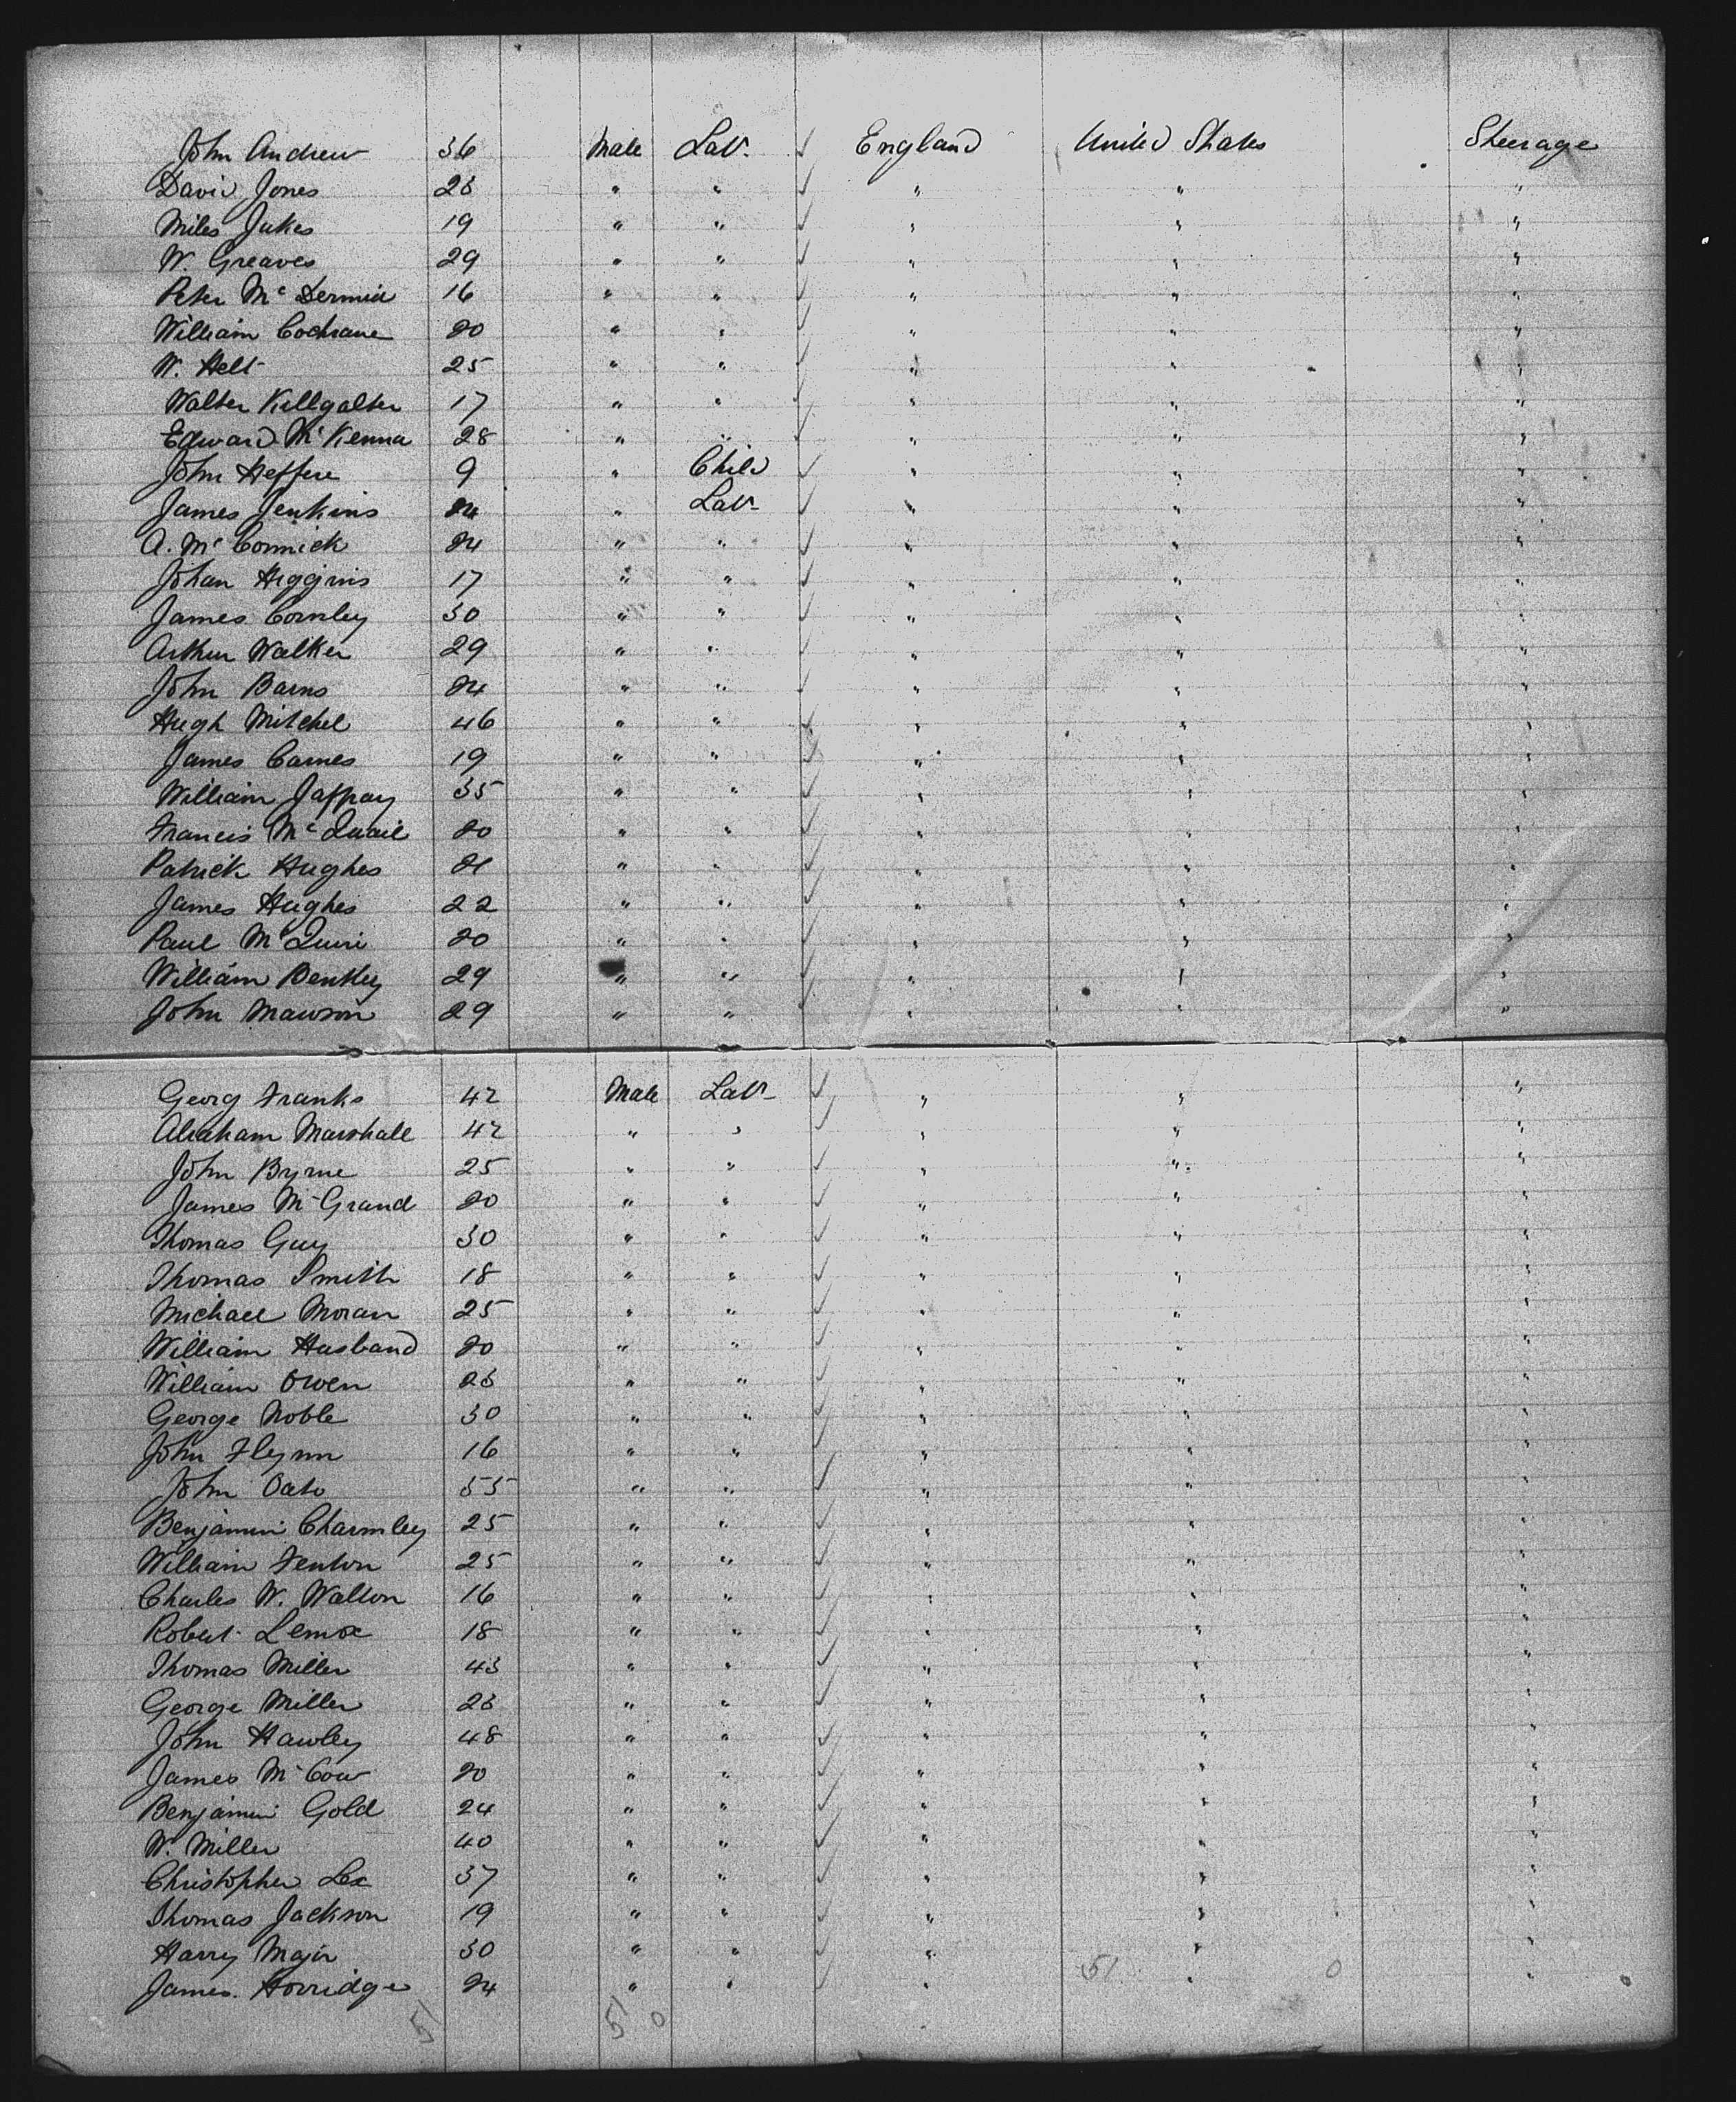 John Andrew 36 Male Lab. ✓ England United States Steerage
David Jones 23 " " ✓ " " "
Miles Jukes 19 " " ✓ " " "
W. Greaves 29 " " ✓ " " "
Peter Mc Dermid 16 " " ✓ " " "
William Cochrane 20 " " ✓ " " "
W. Helt 25 " " ✓ " " "
Walter Killgalter 17 " " ✓ " " "
Edward Mc Kenna 28 " " ✓ " " "
John Heffere 9 " Child ✓ " " "
James Jenkins 24 " Lab. ✓ " " "
A. Mc Cormick 24 " " ✓ " " "
Johan Higgins 17 " " ✓ " " "
James Cornley 30 " " ✓ " " "
Arthur Walker 29 " " ✓ " " "
John Barns 24 " " ✓ " " "
Hugh Mitchel 46 " " ✓ " " "
James Carnes 19 " " ✓ " " "
William Jaffray 35 " " ✓ " " "
Francis Mc Quail 20 " " ✓ " " "
Patrick Hughes 21 " " ✓ " " "
James Hughes 22 " " ✓ " " "
Paul Mc Quin 20 " " ✓ " " "
William Bentley 29 " " ✓ " " "
John Mawson 29 " " ✓ " " "
Georg Franks 42 Male Lab. ✓ " " "
Abraham Marshall 42 " " ✓ " " "
John Byrne 25 " " ✓ " " "
James Mc Grand 20 " " ✓ " " "
Thomas Guy 30 " " ✓ " " "
Thomas Smith 18 " " ✓ " " "
Michael Moran 25 " " ✓ " " "
William Husband 20 " " ✓ " " "
William Owen 23 " " ✓ " " "
George Noble 30 " " ✓ " " "
John Flynn 16 " " ✓ " " "
John Oats 55 " " ✓ " " "
Benjamin Charmley 25 " " ✓ " " "
William Fenton 25 " " ✓ " " "
Charles W. Walton 16 " " ✓ " " "
Robert Lenox 18 " " ✓ " " "
Thomas Miller 43 " " ✓ " " "
George Miller 23 " " ✓ " " "
John Hawley 48 " " ✓ " " "
James Mc Cow 20 " " ✓ " " "
Benjamin Gold 24 " " ✓ " " "
W. Miller 40 " " ✓ " " "
Christopher Lex 37 " " ✓ " " "
Thomas Jackson 19 " " ✓ " " "
Harry Major 30 " " ✓ " " "
James Horridge 24 " " ✓ " 51 " 0 "
51 51 0